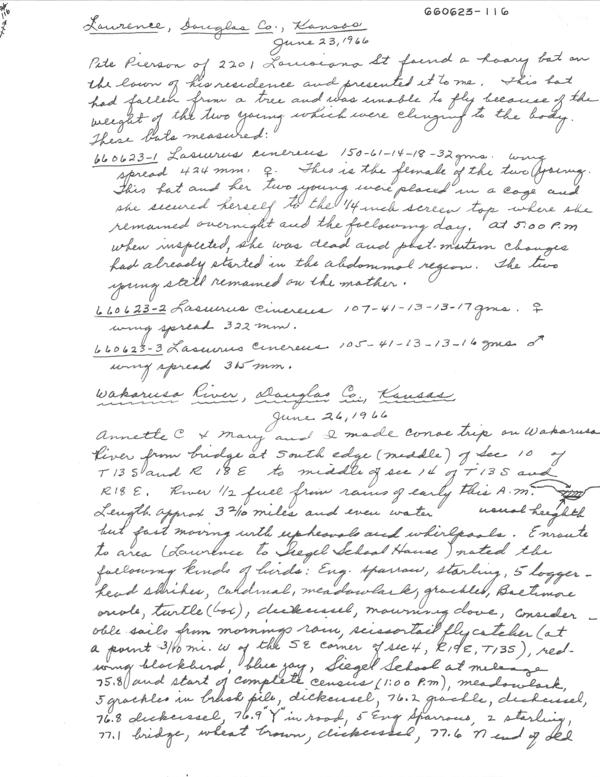 660623-116
Lawrence, Douglas Co., Kansas
June 23, 1966
Pete Pierson of 2201 Louisiana St found a hoary bat on
the lawn of his residence and presented it to me. This bat
had fallen from a tree and was unable to fly because of the
weight of the two young which were clinging to the body.
These bats measured:
660623-1 Lasiurus cinereus 150-61-14-18-32 gms. wing
spread 424 mm. ♀. This is the female of the two young.
This bat and her two young were placed in a cage and
she secured herself to the 1/4 inch screen top where she
remained overnight and the following day. At 5:00 P.M
when inspected, she was dead and post-mortem changes
had already started in the abdominal region. The two
young still remained on the mother.
660623-2 Lasiurus cinereus 107-41-13-13-17 gms. ♀
wing spread 322 mm.
660623-3 Lasiurus cinereus 105-41-13-13-16 gms ♂
wing spread 315 mm.
Wakarusa River, Douglas Co., Kansas
June 26, 1966
Annette C & Mary and I made canoe trip on Wakarusa
River from bridge at South edge (middle) of Sec 10 of
T13S and R 18 E to middle of sec 14 of T13S and
R18E. River 1/2 full from rains of early this A.M.
Length approx 3 2/10 miles and even water usual heighth
but fast moving with upheavals and whirlpools. Enroute
to area (Lawrence to Siegel School House) noted the
following kinds of birds: Eng. sparrow, starling, 5 logger-
head shrikes, cardinal, meadowlark, grackles, Baltimore
oriole, turtle (box), dickcissel, mourning dove, consider-
able soils from mornings rain, scissortail flycatcher (at
a point 3/10 mi. W of the SE corner of sec 4, R19E, T13S), red-
wing blackbird, blue jay, Siegel School at mileage
75.8 and start of complete census (1:00 P.M), meadowlark,
5 grackles in brush pile, dickcissel, 76.2 grackle, dickcissel,
76.8 dickcissel, 76.9 "Y" in road, 5 Eng Sparrows, 2 starling,
77.1 bridge, wheat brown, dickcissel, 77.6 N end of old